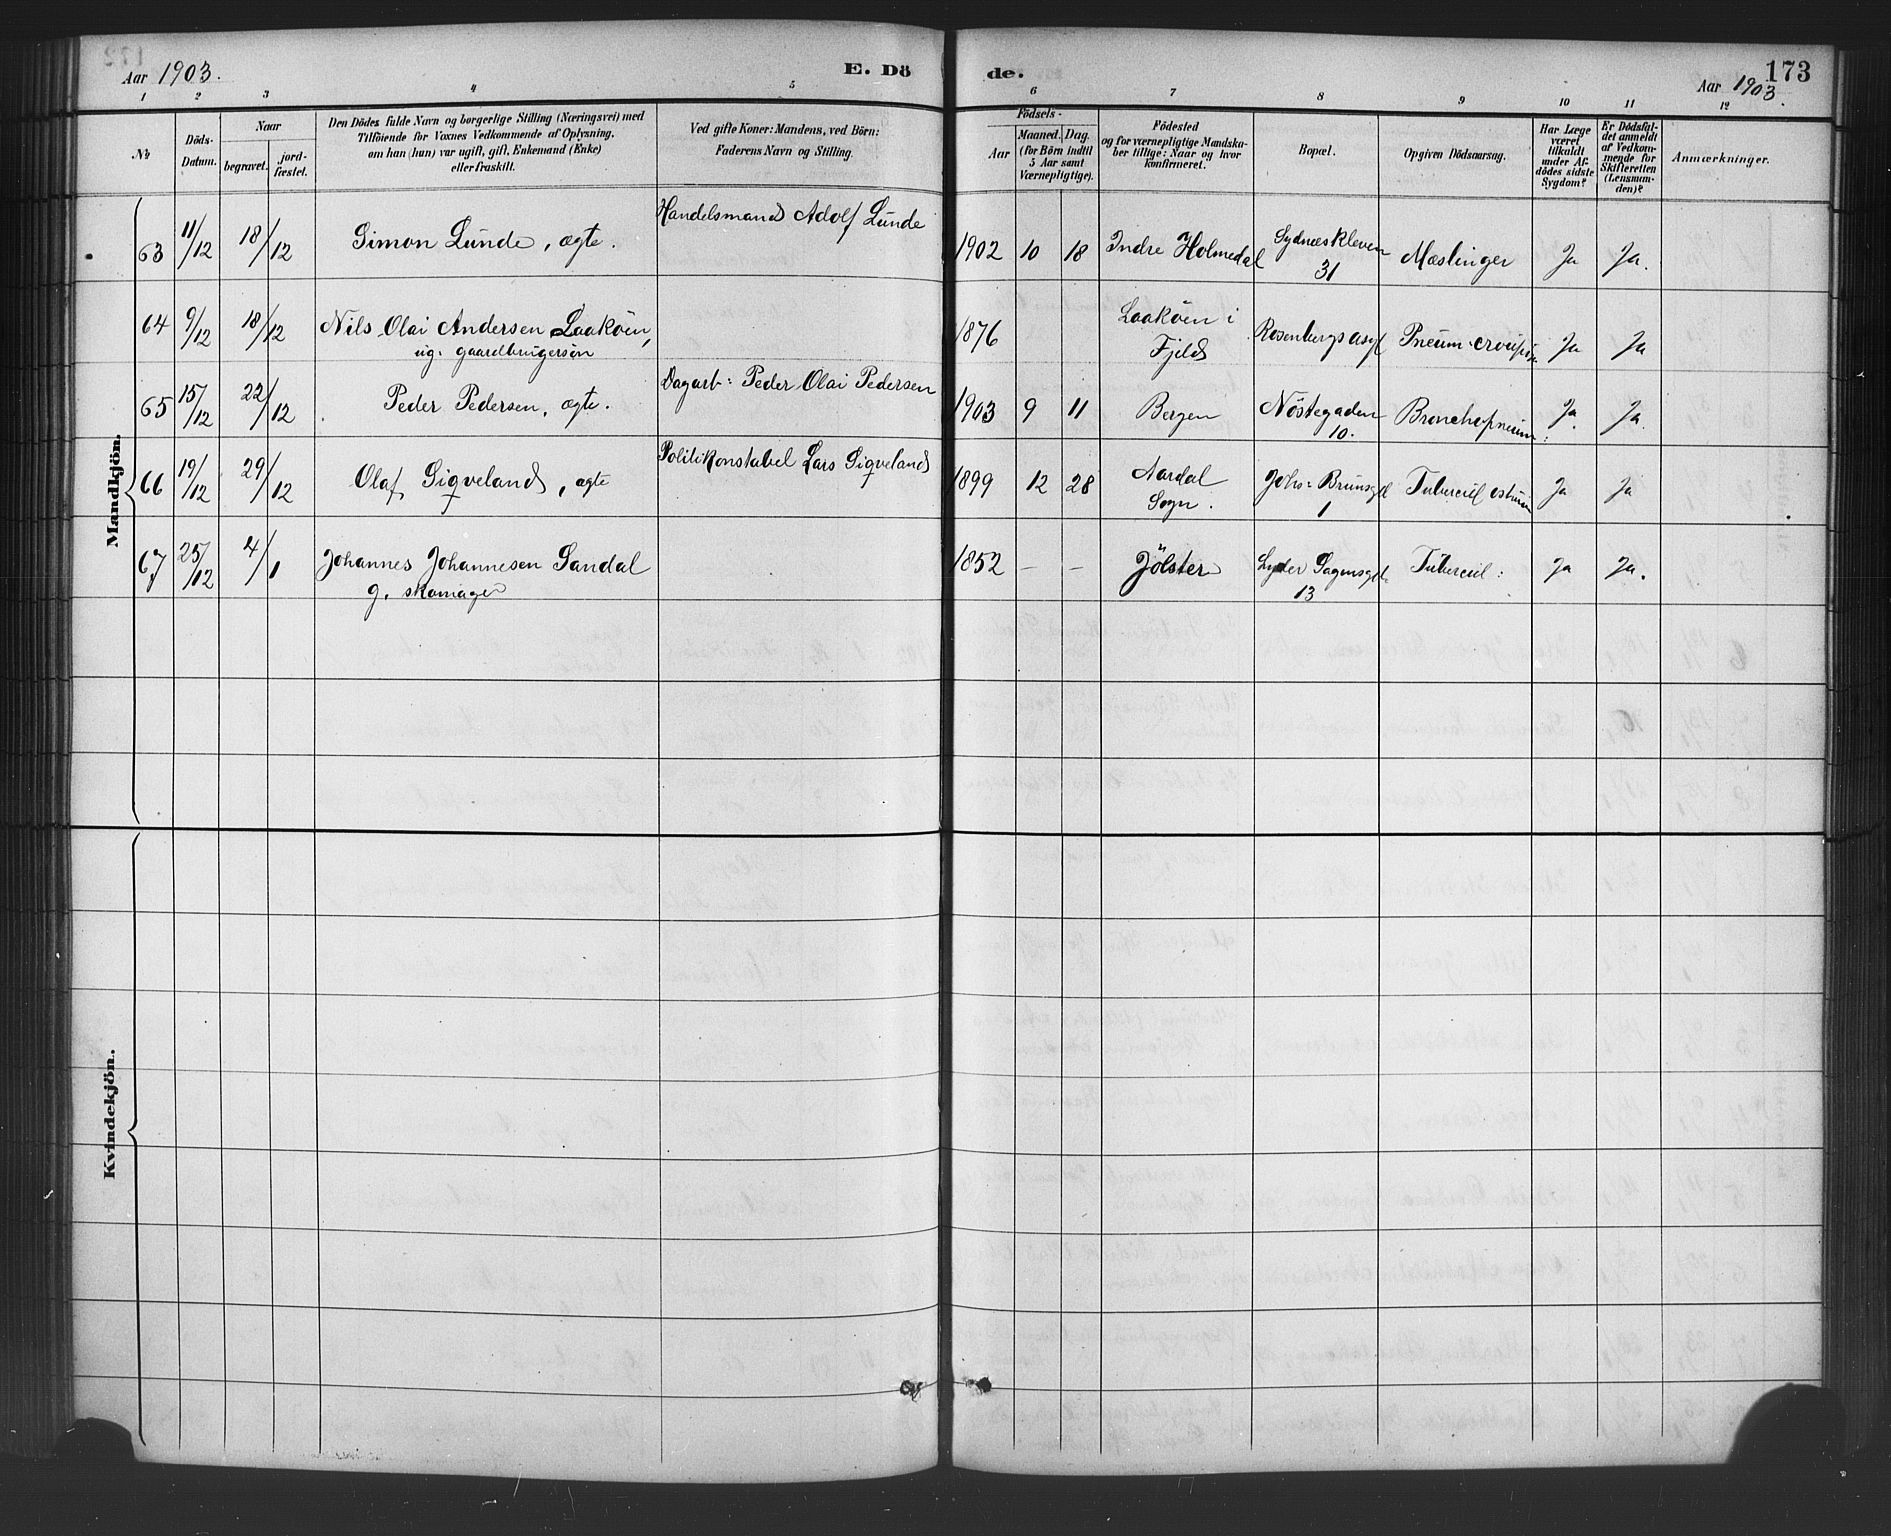 Aar 1903.
E. Dö
de.
173
Aar 1903.
1 2 3 4 5 6 7 8 9 10 11 12
No
Döds-
Datum.
Naar
begravet.
jord-
fæstet.
Den Dödes fulde Navn og borgerlige Stilling (Næringsvei) med
Tilföiende for Voxnes Vedkommende af Oplysning,
om han (hun) var ugift, gift, Enkemand (Enke)
eller fraskilt.
Ved gifte Koner: Mandens, ved Börn:
Faderens Navn og Stilling.
Födsels-
Aar
Maaned. Dag.
(for Börn indtil
5 Aar samt
Værnepligtige).
Födested
og for værnepligtige Mandska-
ber tillige: Naar og hvor
konfirmeret.
Bopæl.
Opgiven Dödsaarsag.
Har Læge
været
tilkaldt
under Af-
dödes sidste
Sygdom?
Er Dödsfal-
det anmeldt
af Vedkom-
mende for
Skifteretten
(Lensman-
den)?
Anmærkninger.
Mandkjön.
63 11/12 18/12 Simon Lunde, ægte. Handelsmand Adolf Lunde 1902 10 18 Indre Holmedal Sydnæskleven 31 Mæslinger Ja Ja.
64 9/12 18/12 Nils Olai Andersen Laakøen, 1876 Laakøen i Rosenbergs asyl Pneum: Ja Ja
ug. gaardbrugersøn Fjeld
65 15/12 22/12 Peder Pedersen, ægte. Dagarb: Peder Olai Pedersen 1903 9 11 Bergen Nöstegaden 10. Bronchopneum: Ja. Ja.
66 19/12 29/12 Olaf Sigveland, ægte Politikonstabel Lars Sigveland 1899 12 28 Aardal Johs: Brunsgd Tubercul Ja Ja
Sogn. 1
67 25/12 4/1 Johannes Johannesen Sandal 1852 – – Jölster Lyder Sagensgd. Tubercul: Ja Ja.
g. skomager 13
Kvindekjön.